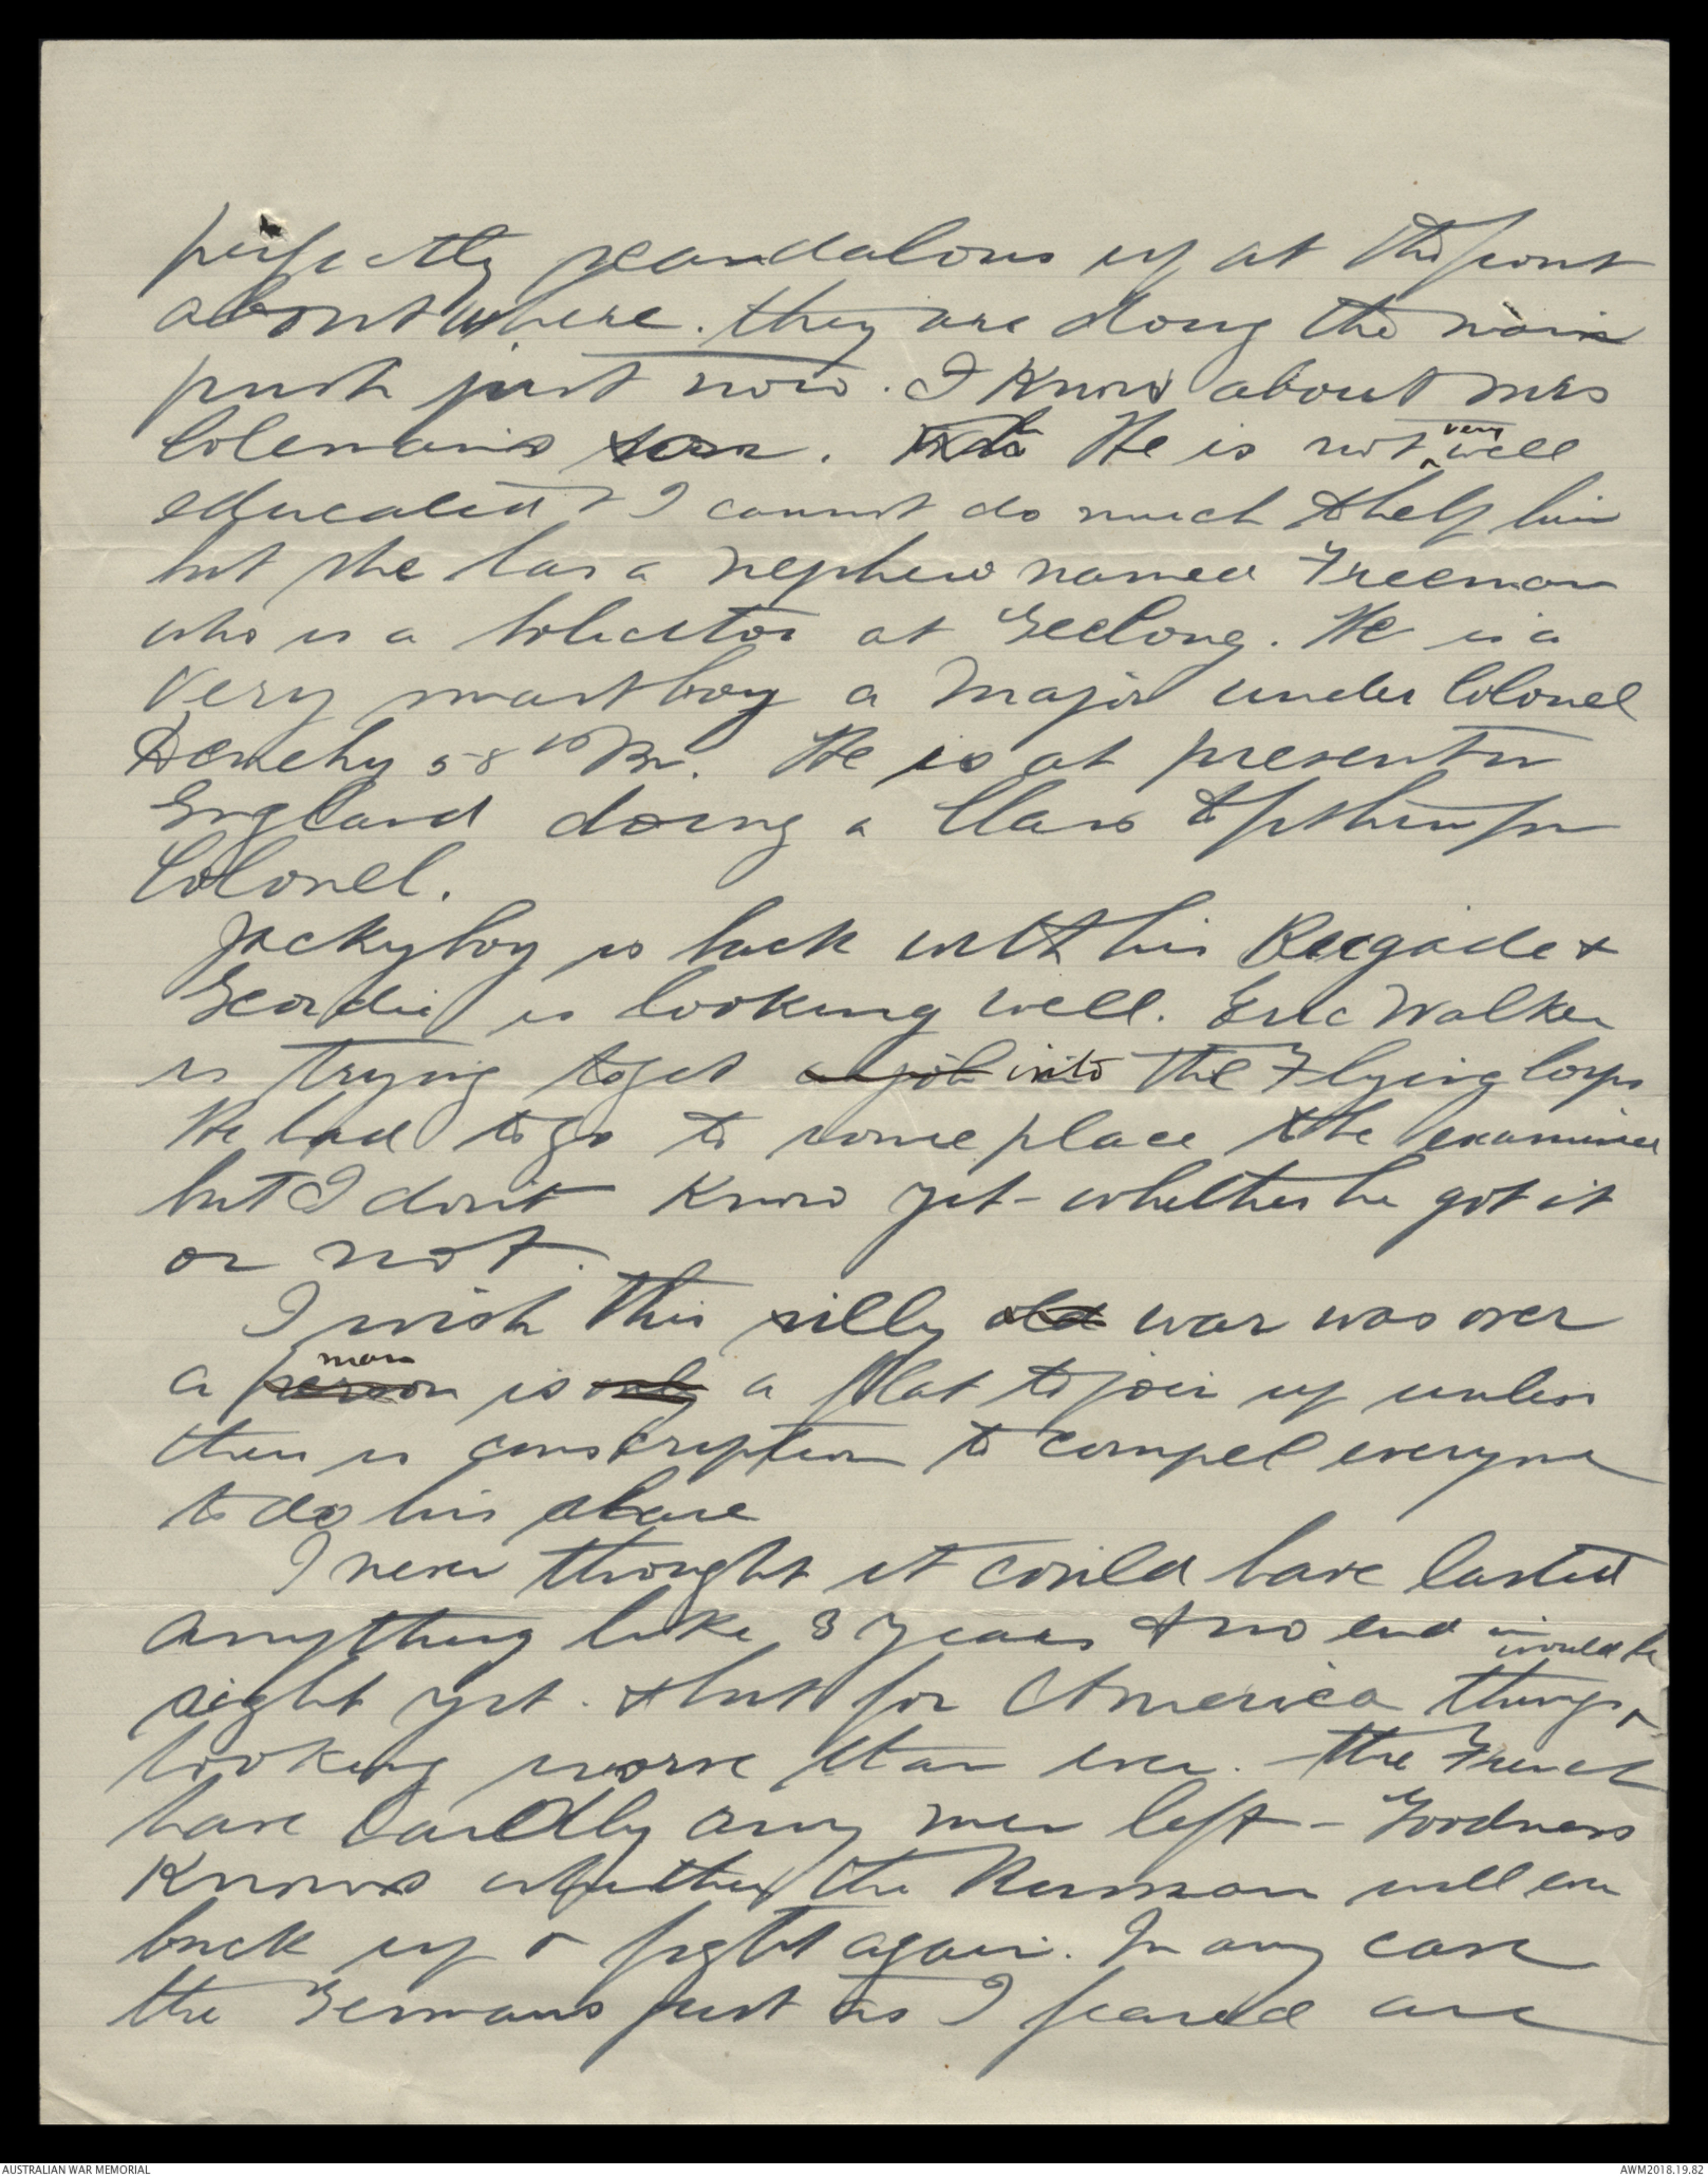 perfectly scandalous up at the front
about where. they are doing the main
push just now. I know about Mrs
Coleman's son. He is not very well
educated & I cannot do much to help him
but she has a nephew named Freeman
who is a Solicitor at Geelong. He is a
very smart boy a Major under Colonel
Denehy 58th Bn. He is at present in
England doing a Class to fit him for
Colonel.
Jackyboy is back with his Brigade &
Geordie is looking well. Eric Walker
is trying to get a job into the Flying Corps
He had to go to some place to be examined
but I don't know yet - whether he got it
or not.
I wish this silly old war was over
a person man is only a flat to join up unless
there is conscription to compel everyone
to do his share
I never thought it could have lasted
anything like 3 years & no end in
sight yet. & but for America things would be
looking worse than ever. The French
have hardly any men left - Goodness
Knows whether the Russian will ever
buck up & fight again. In any case
the Germans just as I feared are
AUSTRALIAN WAR MEMORIAL
AWM2018.19.82